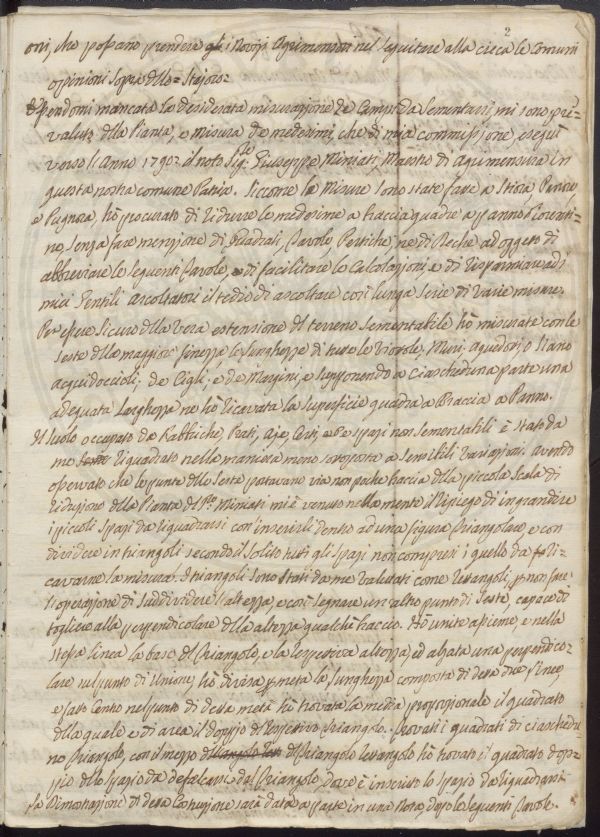 2
oni, che possano prendere gli i Novizi Agrimensori nel seguitare alla cieca le Comuni
opinioni sopra dllo = Stajoro =
Essendomi mancata la desiderata misurazione de Campi da Sementarsi, mi sono pre=
valuto dlla Pianta, e misura de medesimi, che di mia commissione, eseguì
verso l'Anno 1790 = il noto Sig.re Giuseppe Miniati, Maestro di Agrimensura in
questa nostra comune Patria. Siccome le Misure sono state fatte a Stiora, Panora
e Pugnora, hò procurato di ridurre le medesime a braccia quadre a panno fiorenti=
no, senza fare menzione di Quadrati, Tavole, Pertiche, ne di Deche ad oggetto di
abbreviare le seguenti Tavole, e di facilitare le Calcolazioni e di risparmiare a di
miei Gentili Ascoltatori il tedio di ascoltare così lunga serie di varie misure.
Per essere sicuro dlla vera estensione dl terreno sementabile hò misurate con le
seste dlla maggiore finezza le lunghezze di tutte le Viottole, Muri, aquedotti o siano
acquidoccioli, de Cigli, e de Margini, e supponendo a ciascheduna parte una
adequata larghezza ne hò ricavata la superficie quadra a Braccia a Panno.
Il suolo occupato da Fabbriche, Prati, Aje, Orti, e spazi non sementabili è stato da
me riquadrato nella maniera meno sottoposta a sensibili variazioni. Avendo
osservato che le punte dlle Seste portavano via non poche braccia dlla piccola Scala di
riduzione dlla Pianta dl Sig.re Miniati mi è venuto nella mente il ripiego di ingrandire
i piccoli spazi da riquadrarsi con inserirli dentro ad una figura Triangolare, e con
dividere in triangoli secondo il solito tutti gli spazi non compresi i quello da ri=
cavarne la misura. I triangoli sono stati da me valutati come rettangoli, p non fare
l'operazione di suddividere l'altezza, e così segnare un altro punto di seste, capace di
togliere alla perpendicolare dlla altezza qualche braccio. Hò unite assieme, e nella
stessa linea la base dl Triangolo, e la respettiva altezza, ed alzata una perpendico=
lare sul punto di Unione, hò divisa p metà la lunghezza composta di dette due linee
e fatto Centro nel punto di detta metà hò trovata la media proporzionale il quadrato
dlla quale è di area il doppio dl respettivo triangolo. Trovati i quadrati di ciaschedu=
no Triangolo, con il mezzo dl Triangolo rettangolo hò trovato il quadrato dop=
pio dllo spazio da defalcarsi dal Triangolo, dove è inscritto lo spazio da riquadrarsi
La Dimostrazione di detta Costruzione sarà data a parte in una Nota, dopo le seguenti Tavole.